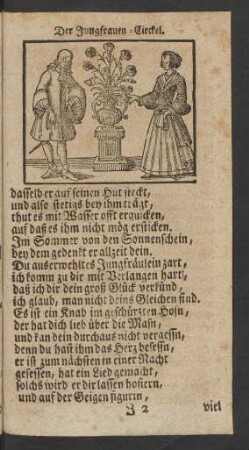 Der Jungfrauen-Circkel.
dasselb er auf seinen Hut steckt,
und also stetigs bey ihm trägt,
thut es mit Wasser offt erquicken,
auf daß es ihm nicht mög ersticken.
Im Sommer von den Sonnenschein,
bey dem gedenkt er allzeit dein.
Du auserwehltes Jungfräulein zart,
ich komm zu dir mit Verlangen hart,
daß ich dir dein groß Glück verkünd,
ich glaub, man nicht deins Gleichen find.
Es ist ein Knab im geschürzten Hosn,
der hat dich lieb über die Masn,
und kan dein durchaus nicht vergessn,
denn du hast ihm das Herz besessn,
er ist zum nächsten in einer Nacht
gesessen, hat ein Lied gemacht,
solchs wird er dir lassen hofiern,
und auf der Geigen figurirn,
J 2 viel